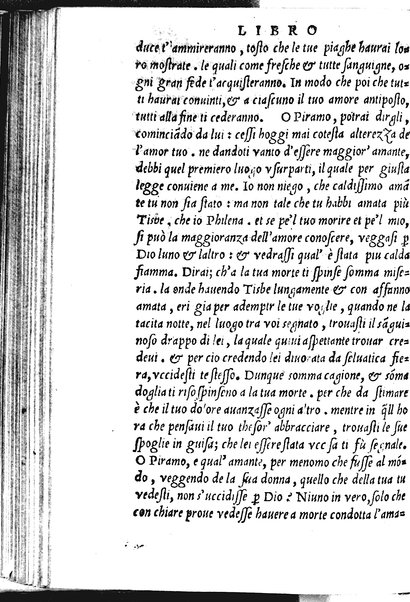 LIBRO
duce t'ammireranno, tosto che le tue piaghe haurai lo=
ro mostrate. le quali come fresche & tutte sanguigne, o=
gni gran fede t'acquisteranno. In modo che poi che tut=
ti haurai conuinti, & a ciascuno il tuo amore antiposto,
tutti alla fine ti cederanno. O Piramo, potrai dirgli,
cominciãdo da lui: cessi hoggi mai cotesta alterezza de
l'amor tuo. ne dandoti vanto d'essere maggior'amante,
debbi quel premiero luogo vsurparti, il quale per giusta
legge conuiene a me. Io non niego, che caldissimo amã
te tu non sia stato: ma non tale che tu habbi amata più
Tisbe, che io Philena. et se pe'l tuo morire et pe'l mio,
si può la maggioranza dell'amore conoscere, veggasi p
Dio luno & laltro: & vedrassi qual' è stata piu calda
fiamma. Dirai; ch'a la tua morte ti spinse somma mise=
ria. la onde hauendo Tisbe lungamente & con affanno
amata, eri gia per adempir le tue voglie, quando ne la
tacita notte, nel luogo tra voi segnato, trouasti il sãgui=
noso drappo di lei, la quale quiui aspettante trouar cre=
deui. & per cio credendo lei diuorata da seluatica fie=
ra, vccidesti te stesso. Dunque somma cagione, & sõma
doglia ti risospinseno a la tua morte. per che da stimare
è che il tuo dolore auanzasse ogni altro. mentre in q̃ll ho
ra che pensaui il tuo thesor' abbracciare, trouasti le sue
spoglie in guisa; che lei essere stata vccisa ti fù segnale.
O Piramo, e qual' amante, per menomo che fusse al mõ=
do, veggendo de la sua donna, quello che della tua tu
vedesti, non s'uccidisse p Dio? Niuno in vero, solo che
con chiare proue vedesse hauere a morte condotta l'ama=